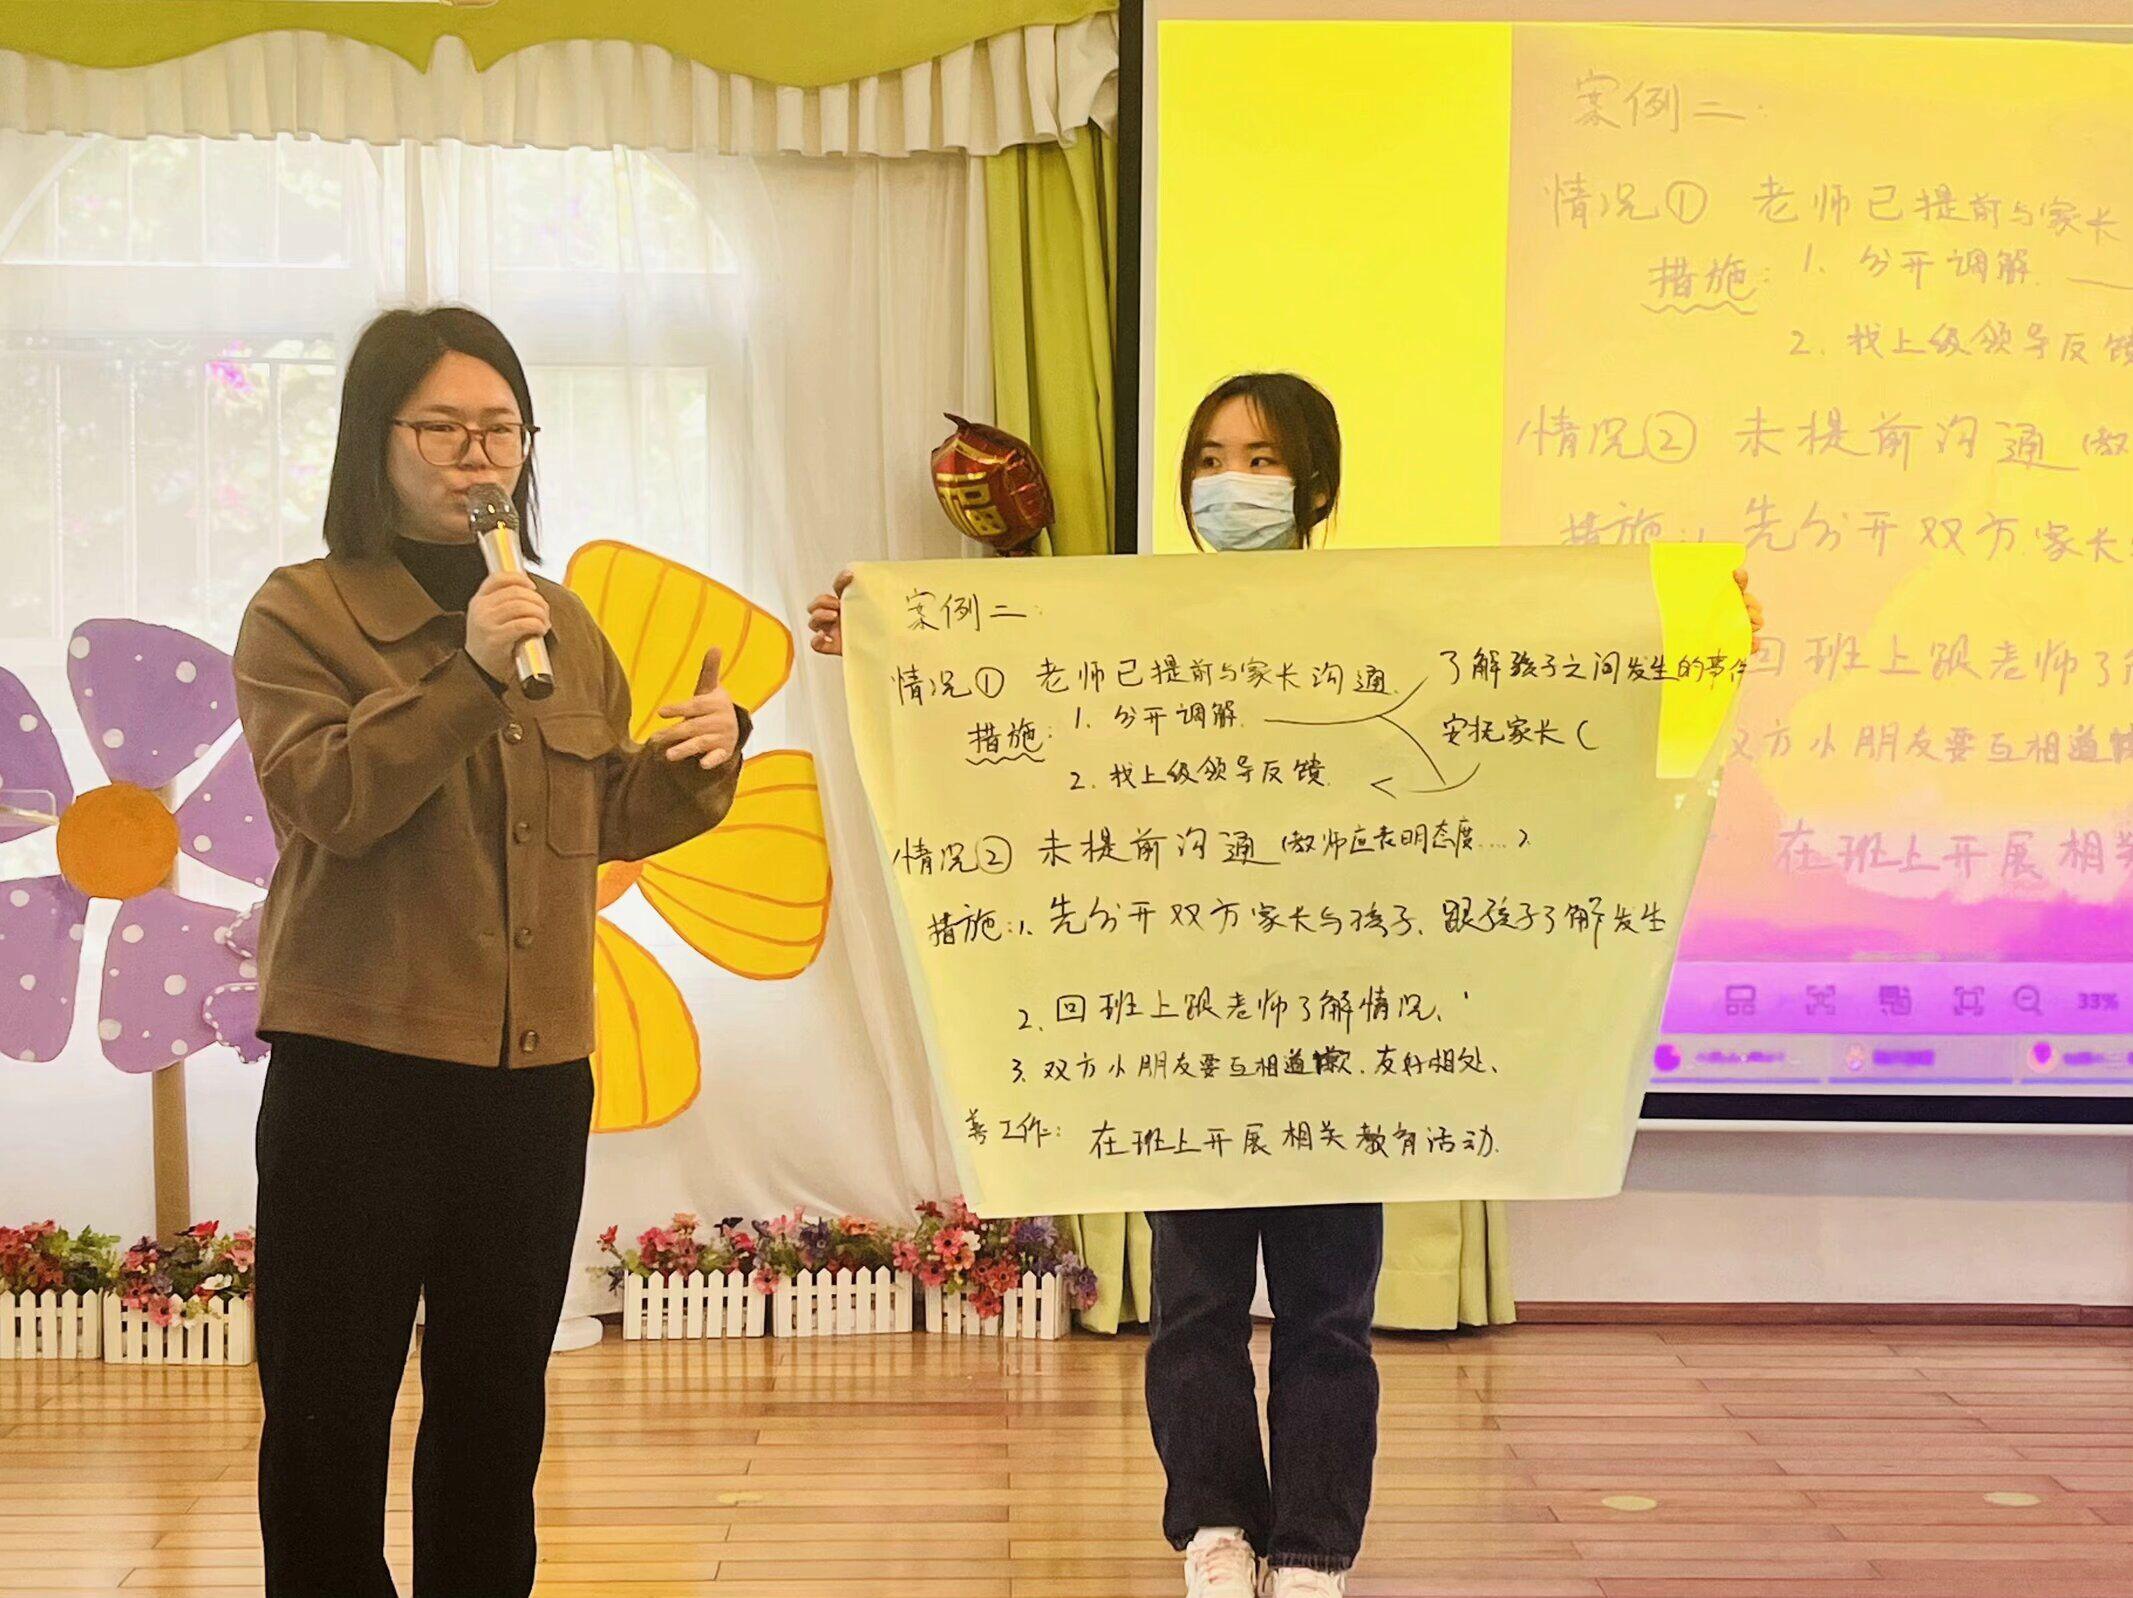 福
案例二:
情况① 老师已提前与家长沟通. 了解孩子之间发生的事件
措施: 1. 分开调解. 安抚家长(
2. 找上级领导反馈.
情况② 未提前沟通(教师应表明态度....).
措施:1. 先分开双方家长与孩子, 跟孩子了解发生
2. 回班上跟老师了解情况、
3. 双方小朋友要互相道歉, 友好相处、
善工作: 在班上开展相关教育活动.
案例二:
情况① 老师已提前与家长
措施: 1. 分开调解.
2. 找上级领导反馈
情况② 未提前沟通(教
措施:1. 先分开双方家长
回班上跟老师了
双方小朋友要互相道歉
在班上开展相关
33%